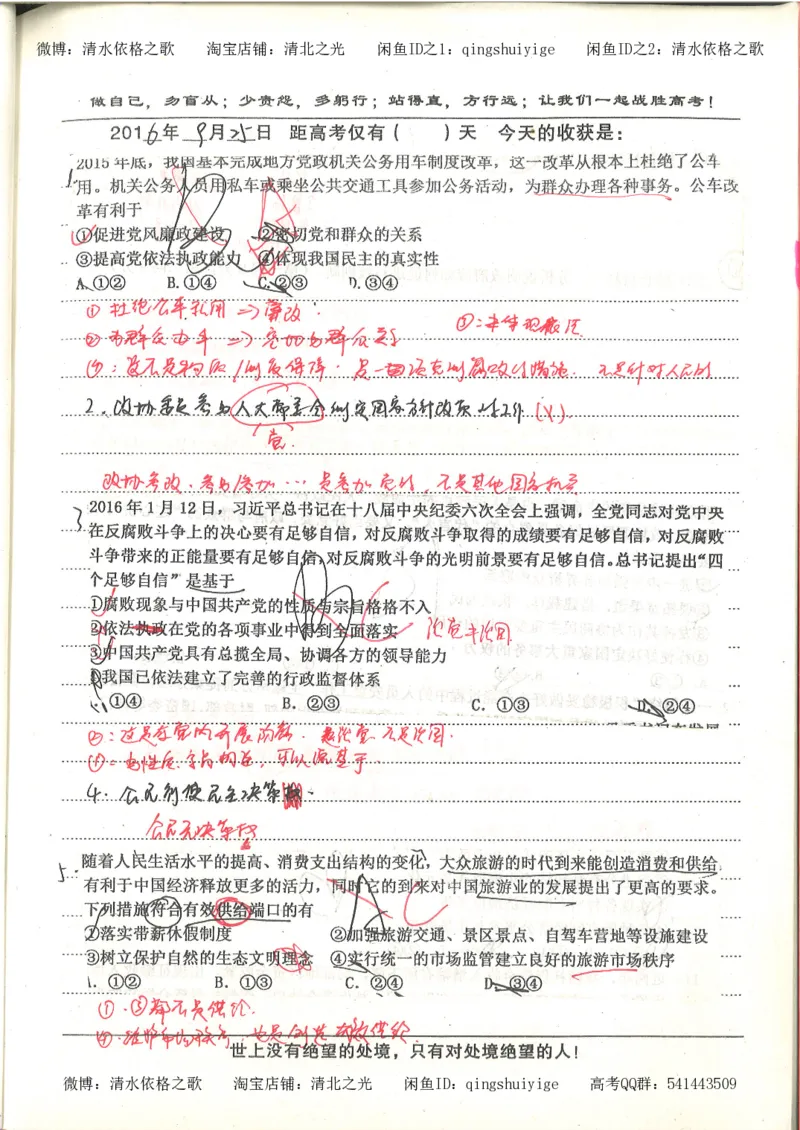 微博：清水依格之歌 淘宝店铺：清北之光 闲鱼ID之1：qingshuiyige 闲鱼ID之2：清水依格之歌
做自己，勿盲从；少责怨，多躬行；站得直，方行远；让我们一起战胜高考！
2016年9月25日 距高考仅有（ ）天 今天的收获是：
1. 2015年底，我国基本完成地方党政机关公务用车制度改革，这一改革从根本上杜绝了公车
用。机关公务人员用私车或乘坐公共交通工具参加公务活动，为群众办理各种事务。公车改
革有利于
①促进党风廉政建设 ②密切党和群众的关系
③提高党依法执政能力 ④体现我国民主的真实性
A.①② B.①④ C.②③ D.③④
①杜绝公车私用⇒廉政
③：未体现依法
②为群众办事⇒
2. 政协委员参与人大常委会制定国家方针政策的工作（×）
党
3. 2016年1月12日，习近平总书记在十八届中央纪委六次全会上强调，全党同志对党中央
在反腐败斗争上的决心要有足够自信，对反腐败斗争取得的成绩要有足够自信，对反腐败
斗争带来的正能量要有足够自信，对反腐败斗争的光明前景要有足够自信。总书记提出“四
个足够自信”是基于
①腐败现象与中国共产党的性质与宗旨格格不入
②依法执政在党的各项事业中得到全面落实 治党≠治国
③中国共产党具有总揽全局、协调各方的领导能力
④我国已依法建立了完善的行政监督体系
①④ B.②③ C.①③ D.②④
4. 公民行使民主决策
公民无决策权
5. 随着人民生活水平的提高、消费支出结构的变化，大众旅游的时代到来能创造消费和供给，
有利于中国经济释放更多的活力，同时它的到来对中国旅游业的发展提出了更高的要求。
下列措施符合有效供给端口的有
①落实带薪休假制度 ②加强旅游交通、景区景点、自驾车营地等设施建设
③树立保护自然的生态文明理念 ④实行统一的市场监管建立良好的旅游市场秩序
A.①② B.①③ C.②④ D.③④
①.③都不是供给.
世上没有绝望的处境，只有对处境绝望的人！
微博：清水依格之歌 淘宝店铺：清北之光 闲鱼ID：qingshuiyige 高考QQ群：541443509